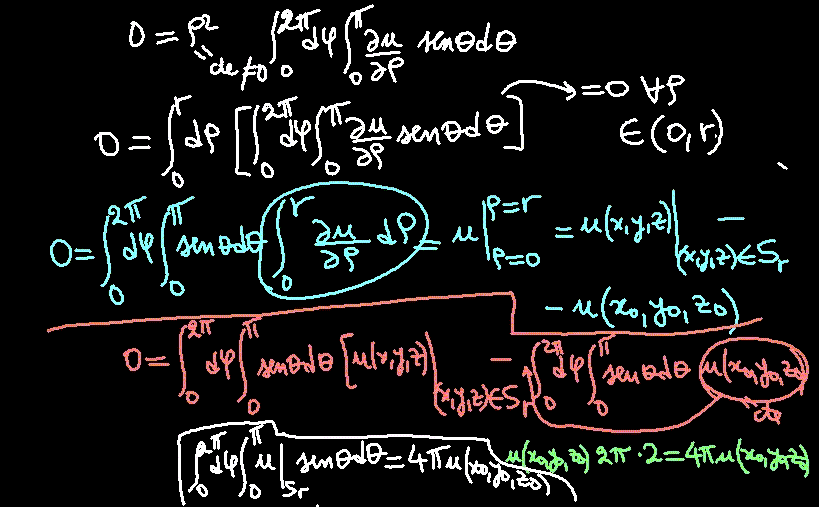 0 = ρ² ∫₀^{2π} dφ ∫₀^{π} ∂u/∂ρ senθdθ
de ≠ 0
0 = ∫₀^{r} dρ [∫₀^{2π} dφ ∫₀^{π} ∂u/∂ρ senθdθ] → = 0 ∀ρ
∈ (0, r)
0 = ∫₀^{2π} dφ ∫₀^{π} senθdθ ∫₀^{r} ∂u/∂ρ dρ = u |_{ρ=0}^{ρ=r} = u(x,y,z) |_{(x,y,z)∈S_r} −
− u(x₀, y₀, z₀)
0 = ∫₀^{2π} dφ ∫₀^{π} senθdθ [u(x,y,z) |_{(x,y,z)∈S_r} − ∫₀^{2π} dφ ∫₀^{π} senθdθ u(x₀,y₀,z₀)
de
∫₀^{2π} dφ ∫₀^{π} u |_{S_r} senθdθ = 4π u(x₀,y₀,z₀)
u(x₀,y₀,z₀) 2π · 2 = 4π u(x₀,y₀,z₀)